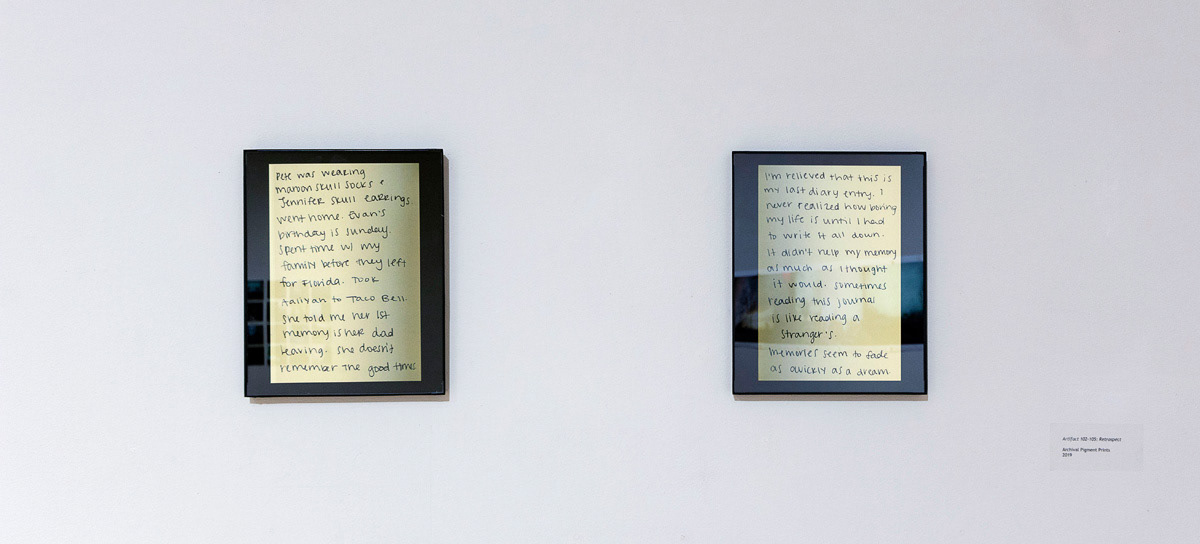 Pete was wearing
maroon skull socks &
Jennifer skull earrings.
went home. Evan's
birthday is Sunday.
Spent time w/ my
family before they left
for Florida. Took
Aaliyah to Taco Bell.
She told me her 1st
memory is her dad
leaving. She doesn't
remember the good times
I'm relieved that this is
my last diary entry. I
never realized how boring
my life is until I had
to write it all down.
It didn't help my memory
as much as I thought
it would. Sometimes
reading this journal
is like reading a
stranger's.
Memories seem to fade
as quickly as a dream
Artifact 102-105: Retrospect
Archival Pigment Prints
2019